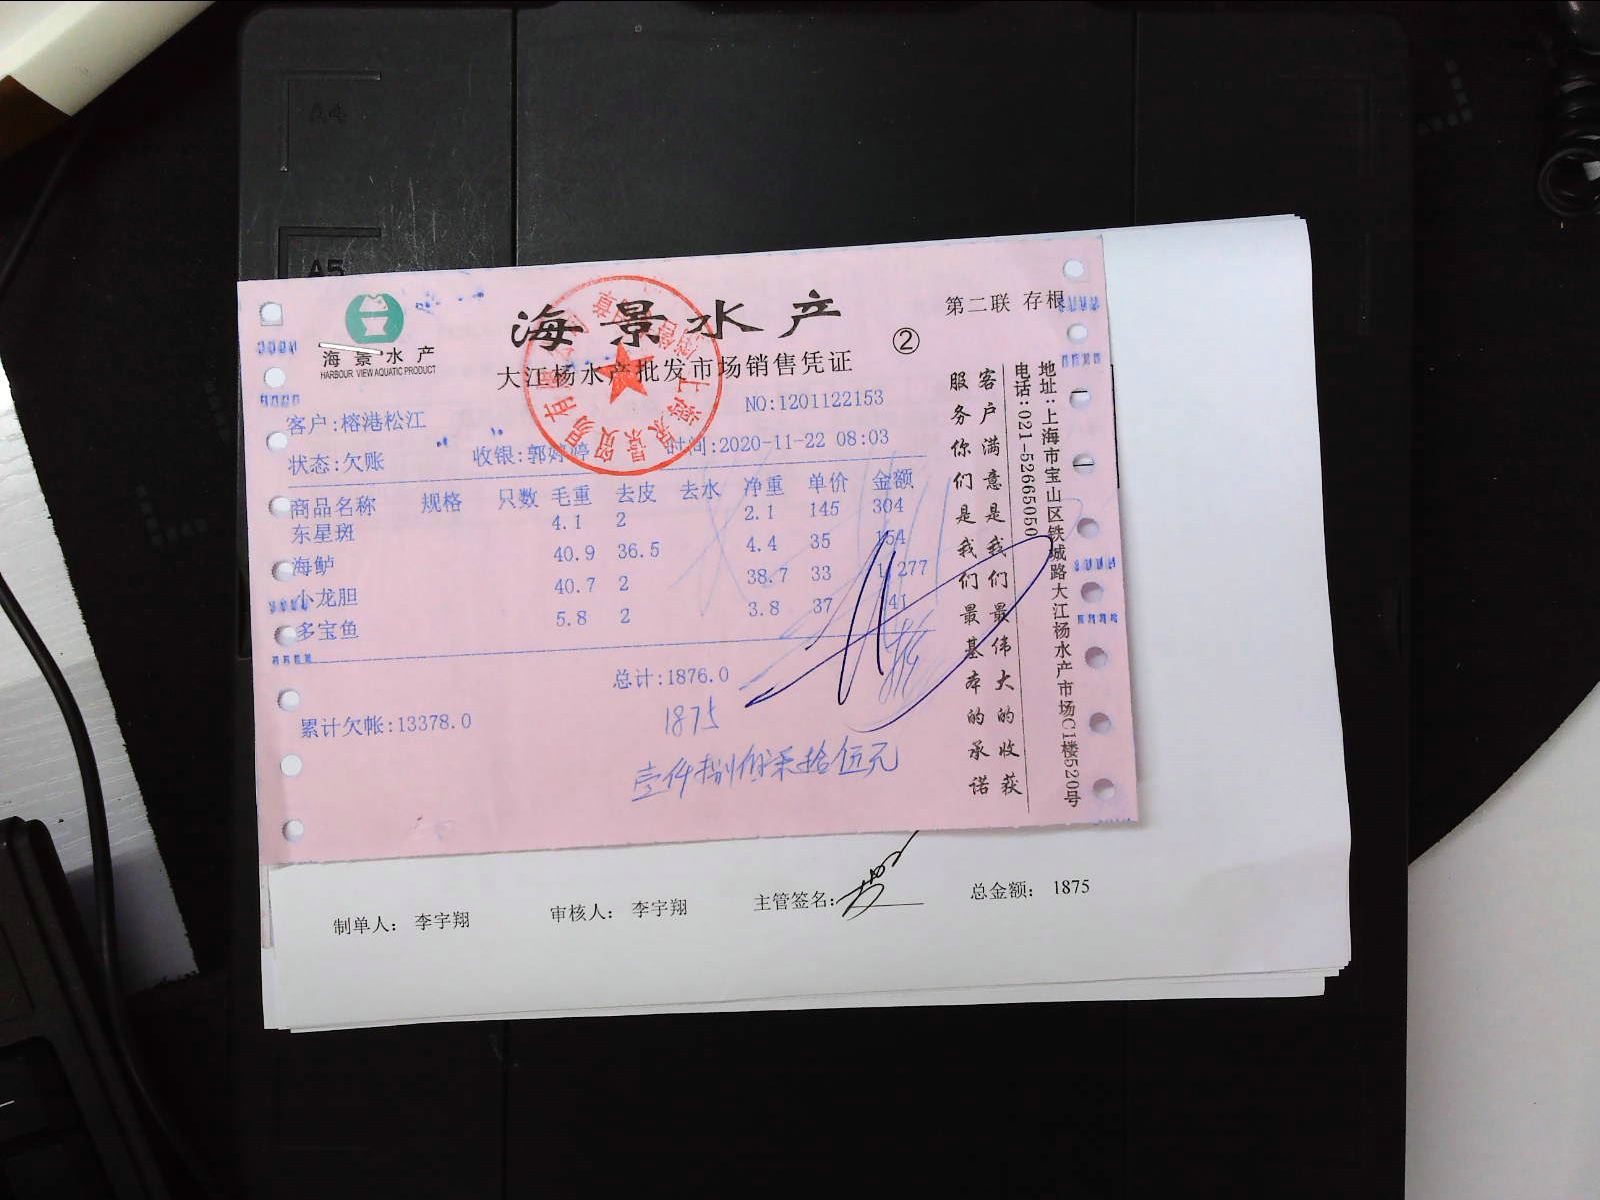 A4
A5
海景水产
HARBOUR VIEW AQUATIC PRODUCT
海景水产
大江杨水产批发市场销售凭证
②
第二联 存根
NO:1201122153
客户:榕港松江
状态:欠账 收银:郭婷婷 时间:2020-11-22 08:03
商品名称 规格 只数 毛重 去皮 去水 净重 单价 金额
东星斑 4.1 2 2.1 145 304
海鲈 40.9 36.5 4.4 35 154
小龙胆 40.7 2 38.7 33 1,277
多宝鱼 5.8 2 3.8 37 141
总计:1876.0
累计欠帐:13378.0
1875
壹仟捌佰柒拾伍元
客户满意是我们最伟大的收获
服务你们是我们最基本的承诺
地址:上海市宝山区铁城路大江杨水产市场C1楼520号
电话:021-52665050
制单人: 李宇翔 审核人: 李宇翔 主管签名: 总金额: 1875